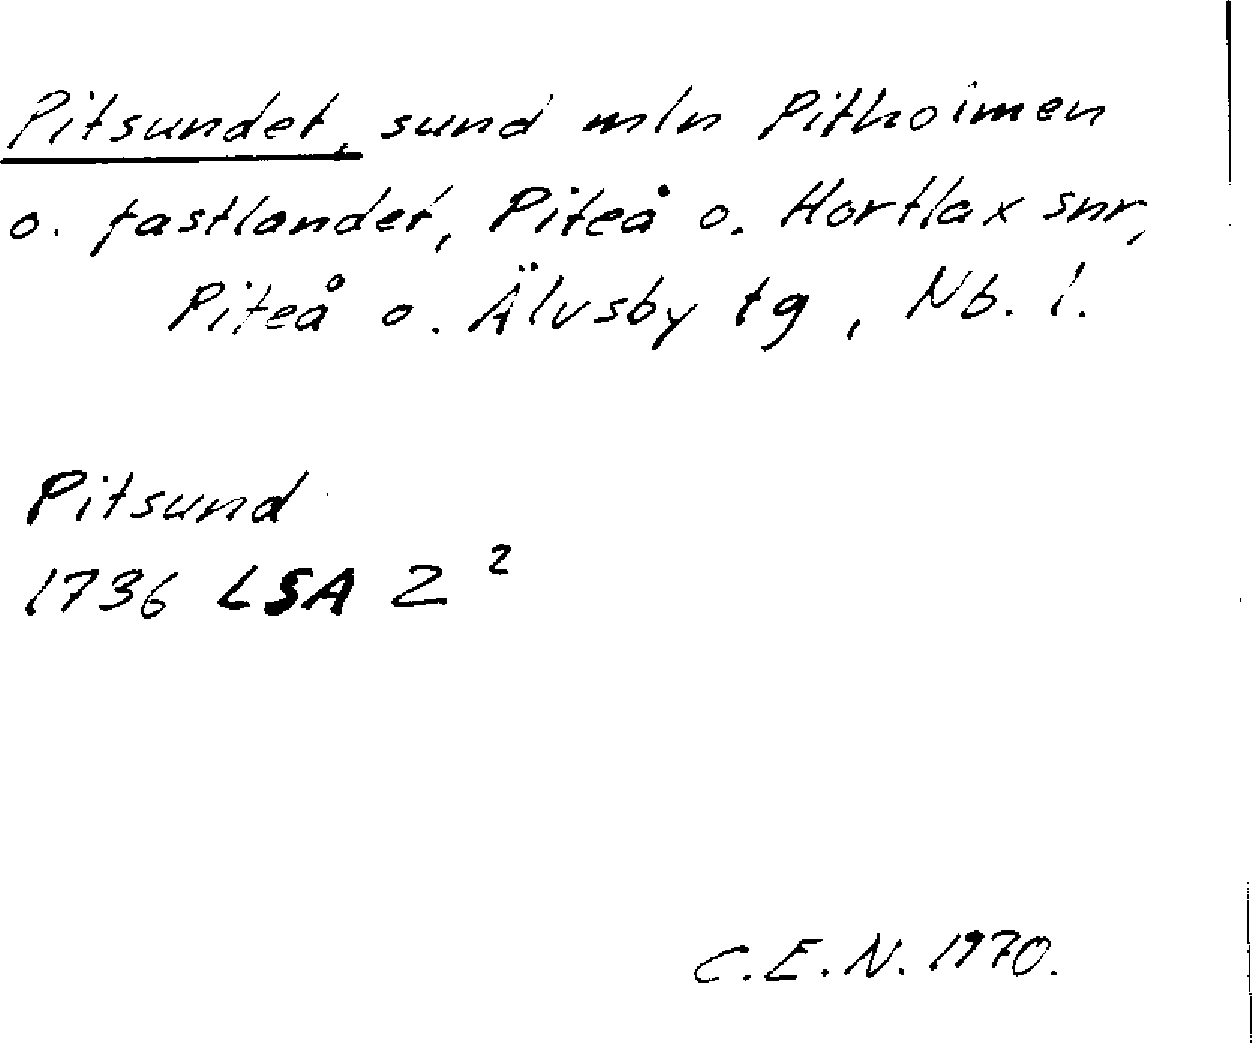 Pitsundet, sund mln Pitholmen
o. fastlandet, Piteå o. Hortlax snr,
Piteå o. Älvsby tg, Nb. l.
Pitsund
1736 LSA Z ²
C.E.N. 1970.